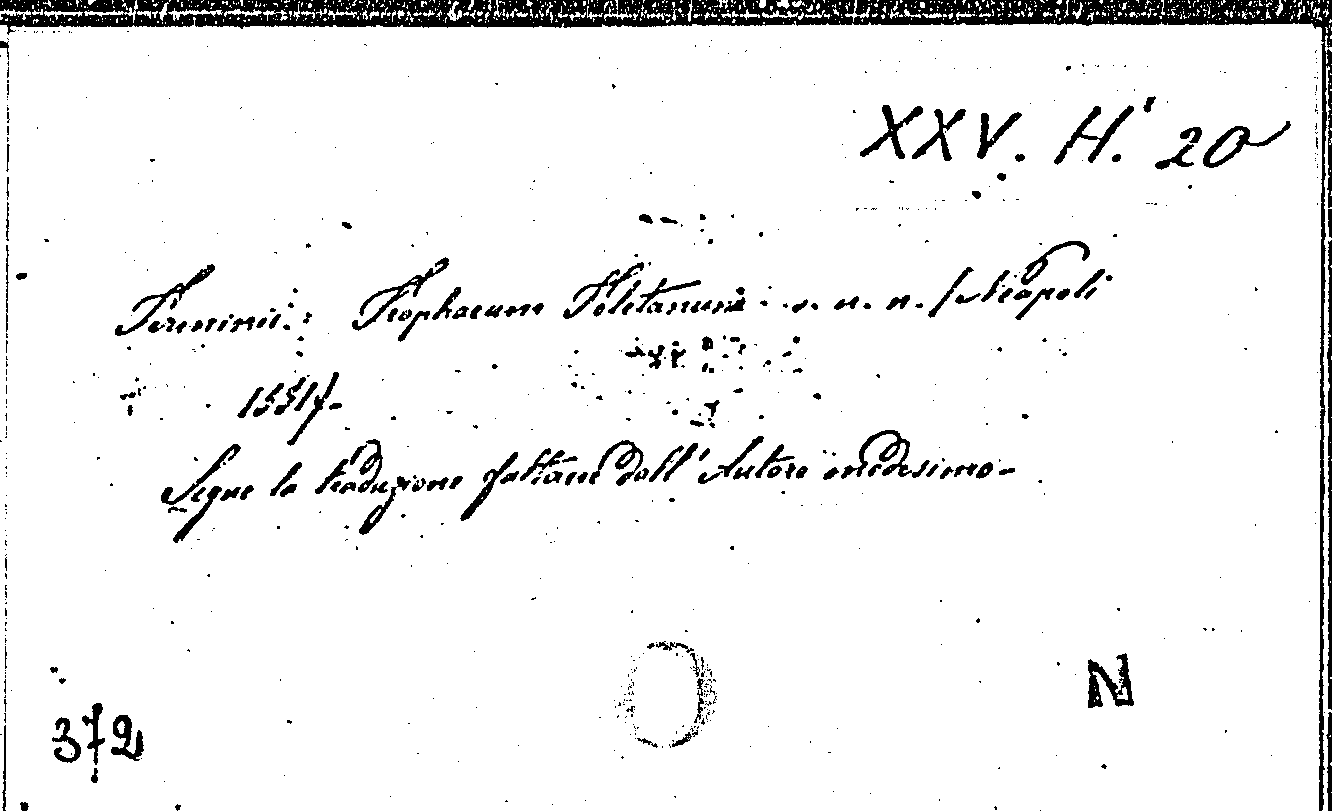 XXV. H.' 20
Terminii: Trophaeum Toletanum s. n. n. / Neapoli
1551.
Segue la traduzione fattane dall' Autore medesimo-
372
N